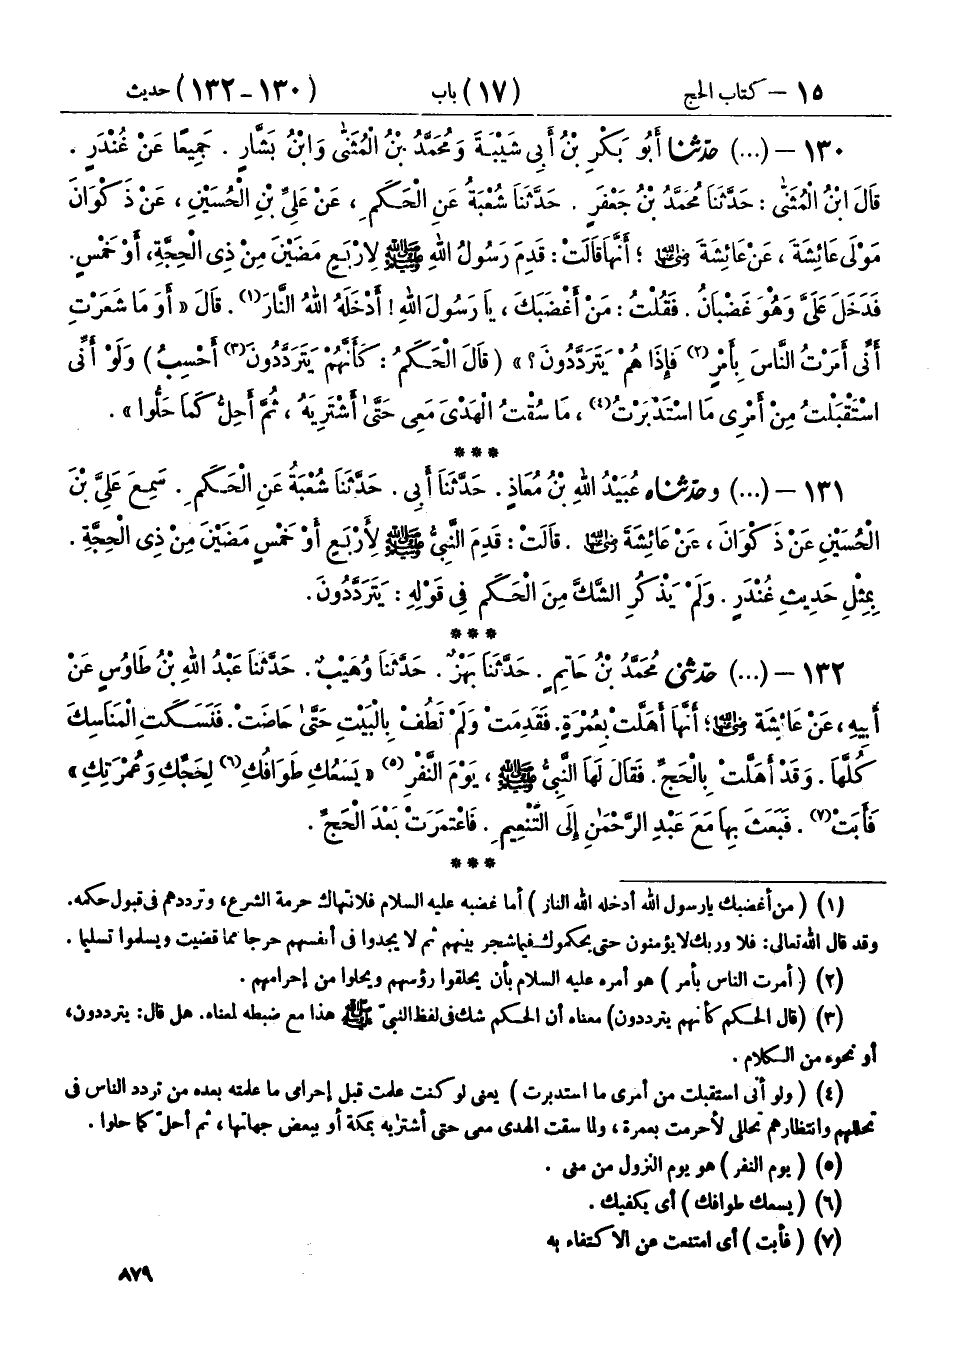 ١٥ - كتاب الحج (١٧) باب (١٣٠-١٣٢) حديث
١٣٠ - (...) حدثنا أَبُو بَكْرِ بْنُ أَبِي شَيْبَةَ وَمُحَمَّدُ بْنُ الْمُثَنَّى وَابْنُ بَشَّارٍ . جَمِيعًا عَنْ غُنْدَرٍ .
قَالَ ابْنُ الْمُثَنَّى : حَدَّثَنَا مُحَمَّدُ بْنُ جَعْفَرٍ . حَدَّثَنَا شُعْبَةُ عَنِ الْحَكَمِ ، عَنْ عَلِيِّ بْنِ الْحُسَيْنِ ، عَنْ ذَكْوَانَ
مَوْلَى عَائِشَةَ ، عَنْ عَائِشَةَ رضي الله عنها ؛ أَنَّهَا قَالَتْ : قَدِمَ رَسُولُ اللهِ ﷺ لِأَرْبَعٍ مَضَيْنَ مِنْ ذِي الْحِجَّةِ، أَوْ خَمْسٍ.
فَدَخَلَ عَلَيَّ وَهُوَ غَضْبَانُ . فَقُلْتُ : مَنْ أَغْضَبَكَ ، يَا رَسُولَ اللهِ ! أَدْخَلَهُ اللهُ النَّارَ(١) . قَالَ « أَوَ مَا شَعَرْتِ
أَنِّي أَمَرْتُ النَّاسَ بِأَمْرٍ(٢) فَإِذَا هُمْ يَتَرَدَّدُونَ ؟ » ( قَالَ الْحَكَمُ : كَأَنَّهُمْ يَتَرَدَّدُونَ(٣) أَحْسِبُ ) وَلَوْ أَنِّي
اسْتَقْبَلْتُ مِنْ أَمْرِي مَا اسْتَدْبَرْتُ(٤) ، مَا سُقْتُ الْهَدْىَ مَعِي حَتَّى أَشْتَرِيَهُ ، ثُمَّ أَحِلُّ كَمَا حَلُّوا » .
***
١٣١ - (...) وحدثناه عُبَيْدُ اللهِ بْنُ مُعَاذٍ . حَدَّثَنَا أَبِي . حَدَّثَنَا شُعْبَةُ عَنِ الْحَكَمِ . سَمِعَ عَلِيَّ بْنَ
الْحُسَيْنِ عَنْ ذَكْوَانَ ، عَنْ عَائِشَةَ رضي الله عنها . قَالَتْ : قَدِمَ النَّبِيُّ ﷺ لِأَرْبَعٍ أَوْ خَمْسٍ مَضَيْنَ مِنْ ذِي الْحِجَّةِ .
بِمِثْلِ حَدِيثِ غُنْدَرٍ . وَلَمْ يَذْكُرِ الشَّكَّ مِنَ الْحَكَمِ فِي قَوْلِهِ : يَتَرَدَّدُونَ.
***
١٣٢ - (...) حدثني مُحَمَّدُ بْنُ حَاتِمٍ . حَدَّثَنَا بَهْزٌ . حَدَّثَنَا وُهَيْبٌ . حَدَّثَنَا عَبْدُ اللهِ بْنُ طَاوُسٍ عَنْ
أَبِيهِ ، عَنْ عَائِشَةَ رضي الله عنها ؛ أَنَّهَا أَهَلَّتْ بِعُمْرَةٍ. فَقَدِمَتْ وَلَمْ تَطُفْ بِالْبَيْتِ حَتَّى حَاضَتْ . فَنَسَكَتِ الْمَنَاسِكَ
كُلَّهَا . وَقَدْ أَهَلَّتْ بِالْحَجِّ . فَقَالَ لَهَا النَّبِيُّ ﷺ ، يَوْمَ النَّفْرِ(٥) « يَسَعُكِ طَوَافُكِ(٦) لِحَجِّكِ وَعُمْرَتِكِ »
فَأَبَتْ(٧) . فَبَعَثَ بِهَا مَعَ عَبْدِ الرَّحْمٰنِ إِلَى التَّنْعِيمِ . فَاعْتَمَرَتْ بَعْدَ الْحَجِّ .
***
(١) ( من أغضبك يا رسول الله أدخله الله النار ) أما غضبه عليه السلام فلانتهاك حرمة الشرع، وترددهم فى قبول حكمه.
وقد قال الله تعالى: فلا وربك لا يؤمنون حتى يحكموك فيما شجر بينهم ثم لا يجدوا فى أنفسهم حرجا مما قضيت ويسلموا تسليما .
(٢) ( أمرت الناس بأمر ) هو أمره عليه السلام بأن يحلقوا رؤسهم ويحلوا من إحرامهم .
(٣) (قال الحكم كأنهم يترددون) معناه أن الحكم شك فى لفظ النبىّ ﷺ هذا مع ضبطه لمعناه. هل قال: يترددون،
أو نحوه من الكلام .
(٤) ( ولو أنى استقبلت من أمرى ما استدبرت ) يعنى لو كنت علمت قبل إحرامى ما علمته بعده من تردد الناس فى
تحللهم وانتظارهم تحللى لأحرمت بعمرة ، ولما سقت الهدى معى حتى أشتريه بمكة أو ببعض جهاتها ، ثم أحلّ كما حلوا .
(٥) ( يوم النفر ) هو يوم النزول من منى .
(٦) ( يسعك طوافك ) أى يكفيك .
(٧) ( فأبت ) أى امتنعت عن الاكتفاء به
٨٧٩